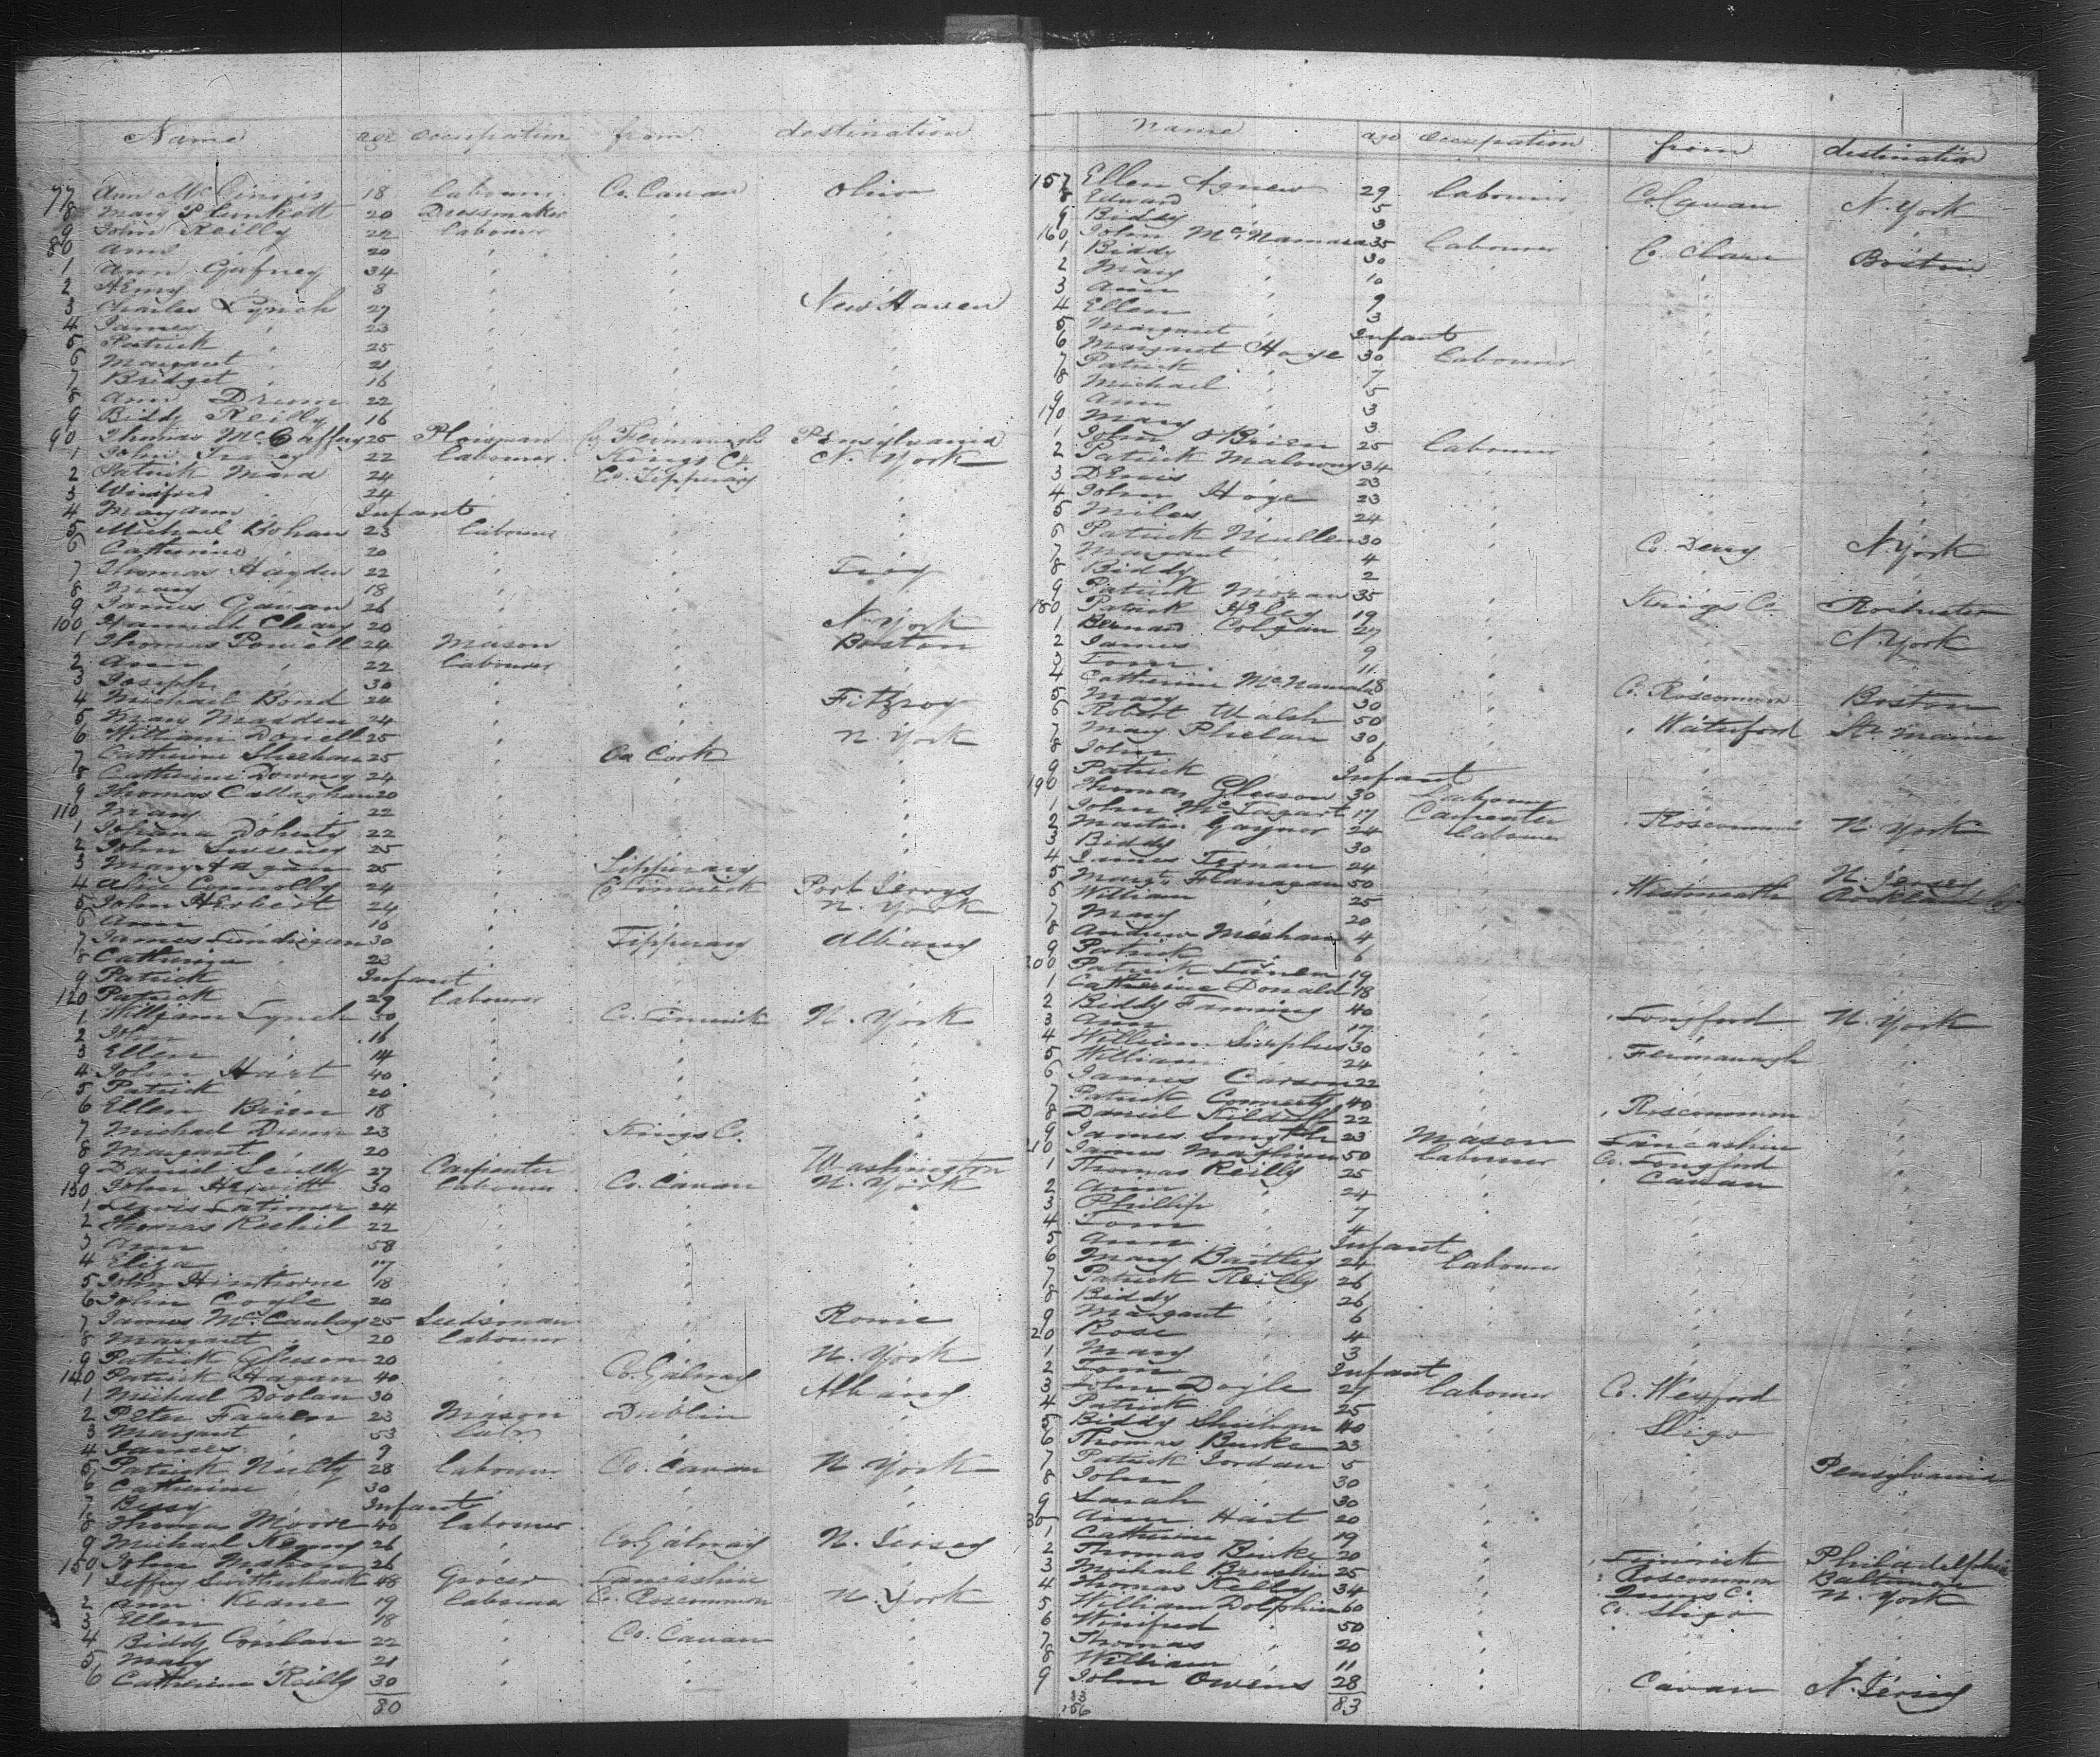 Name age occupation from destination
77 Ann McGinnis 18 Labourer Co. Cavan Ohio
8 Mary Plunkett 20 Dressmaker " "
9 John Reilly 22 Labourer " "
80 Ann " 20 " " "
1 Ann Gafney 34 " " "
2 Henry " 8 " " "
3 Charles Lynch 27 " " New Haven
4 James " 23 " " "
5 Patrick " 25 " " "
6 Margaret " 21 " " "
7 Bridget " 16 " " "
8 Ann Drum 22 " " "
9 Biddy Reilly 16 " " "
90 Thomas McCaffery 25 Plowman Co Fermanagh Pensylvania
1 John Tracey 22 Labourer Kings Co. N. York
2 Patrick Mara 24 " Co. Tipperary "
3 Winifred " 24 " " "
4 Maryann " Infant " "
5 Michael Bohan 23 Labourer " "
6 Catherine " 20 " " "
7 Thomas Hayden 22 " " Troy
8 Mary " 18 " " "
9 James Gavan 26 " " "
100 Hannah Cleary 20 " " N. York
1 Thomas Powell 24 Mason " Boston
2 Ann " 22 Labourer " "
3 Joseph " 30 " " "
4 Michael Bond 24 " " Fitzroy
5 Mary Madden 24 " " "
6 William Donell 25 " " N. York
7 Catherine Sheehan 25 " Co Cork "
8 Catherine Downey 24 " " "
9 Thomas Callaghan 20 " " "
110 Mary " 22 " " "
1 Johana Doherty 22 " " "
2 John Sweeney 25 " " "
3 Mary Hagan 25 " Tipperary "
4 Alice Connolly 24 " Co Limerick Port Jervys
5 John Herbert 24 " " N. York
6 Ann " 16 " " "
7 James Lundrigan 30 " Tipperary Albany
8 Catherine " 23 " " "
9 Patrick " Infant " "
120 Patrick " 29 Labourer " "
1 William Lynch 50 " Co. Limerick N. York
2 John " 16 " " "
3 Ellen " 14 " " "
4 John Hart 40 " " "
5 Patrick " 20 " " "
6 Ellen Brien 18 " " "
7 Michael Dunn 23 " Kings Co. "
8 Margaret " 20 " " "
9 Daniel Scully 27 Carpenter " Washington
130 John Hewitt 30 Labourer Co. Cavan N. York
1 Lewis Latimer 24 " " "
2 Thomas 22 " " "
3 Ann " 58 " " "
4 Eliza " 17 " " "
5 John Hinthorne 18 " " "
6 John Coyle 20 " " "
7 James McCaulay 25 " Rome
8 Margaret " 20 Labourer " "
9 Patrick Gleeson 20 " " N. York
140 Patrick Hagan 40 " Co. Galway "
1 Michael Doolan 30 " " Albany
2 Peter Farren 23 Mason Dublin "
3 Margaret " 53 " "
4 James " 9 " "
5 Patrick Nulty 28 Labourer Co. Cavan N York
6 Catherine " 30 " " "
7 Bessy " Infant " "
8 Thomas Moore 40 Labourer " "
9 Michael Kenny 26 " Co. Galway N. Jersey
150 John Mahon 26 " " "
1 Jeffrey 48 Grocer Lancashire "
2 Ann Keane 19 Labourer Co. Roscommon N. York
3 Ellen " 18 " " "
4 Biddy Conlan 22 " Co. Cavan "
5 Mary " 21 " " "
6 Catherine Reilly 30 " " "
80
name age occupation from destination
157 Ellen Agnew 29 Labourer Co Cavan N. York
8 Edward " 5
9 Biddy " 3
160 John McNamara 35 Labourer Co. Clare Boston
1 Biddy " 30 " " "
2 Mary " 10 " " "
3 Ann " 9 " " "
4 Ellen " 3 " " "
5 Margaret " Infant " "
6 Margaret Hoye 30 Labourer " "
7 Patrick " 7 " "
8 Michael " 5 " "
9 Ann " 3 " "
170 Mary " 3 " "
1 John O'Brien 25 Labourer " "
2 Patrick Malowny 34 " " "
3 Denis " 23 " " "
4 John Hoye 23 " " "
5 Miles " 24 " " "
6 Patrick Mullen 30 " Co. Derry N. York
7 Margaret " 4 " " "
8 Biddy " 2 " " "
9 Patrick Moran 35 " Kings Co. Rochester
180 Patrick 19 " " "
1 Bernard Colgan 27 " " N. York
2 James " 9 " " "
3 Tom " 11 " " "
4 Catherine McNamara 18 " Co. Roscommon Boston
5 Mary " 30 " " "
6 Robert Walsh 50 " " Waterford
7 Mary Phelan 30 " " "
8 John " 6 " "
9 Patrick " Infant " "
190 Thomas Gleeson 30 Labourer " "
1 John McTagart 17 Carpenter " Roscommon N. York
2 Martin Gaynor 24 Labourer " "
3 Biddy " 30 " " "
4 James Ternan 24 " " N. Jersey
5 Margt. Flanagan 50 " " Westmeath Rockland Co
6 William " 25 " " "
7 Mary " 20 " " "
8 Andrew Meehan 4 " " "
9 Patrick " 6 " " "
200 Patrick 19 " " "
1 Catherine Donald 18 " " "
2 Biddy Fanning 40 " " Longford N. York
3 Ann " 17 " " "
4 William 30 " " Fermanagh "
5 William " 24 " " "
6 James Carson 22 " " "
7 Patrick Connerty 40 " " Roscommon "
8 Daniel Kilduff 22 " " "
9 James Smyth 23 Mason Lancashire "
210 James 50 Labourer Co. Longford "
1 Thomas Reilly 25 " " Cavan "
2 Ann " 24 " " "
3 Phillip " 7 " " "
4 Tom " 4 " " "
5 Ann " Infant " "
6 Mary Bartley 24 Labourer " "
7 Patrick Reilly 26 " " "
8 Biddy " 26 " " "
9 Margaret " 6 " " "
20 Rose " 4 " " "
1 Mary " 3 " " "
2 Tom " Infant " "
3 John Doyle 27 Labourer Co. Wexford "
4 Patrick " 25 " " "
5 Biddy Sheehan 40 " " Sligo "
6 Thomas Burke 23 " " "
7 Patrick Jordan 5 " " Pensylvania
8 John " 30 " " "
9 Sarah " 30 " " "
30 Ann Hart 20 " " "
1 Catherine " 19 " " "
2 Thomas Burke 20 " " Limerick Philadelphia
3 Michael 25 " " Roscommon Baltimore
4 Thomas Kelly 34 " " Queens Co. N. York
5 William Dolphin 60 " Co. Sligo "
6 Winifred " 50 " " "
7 Thomas " 20 " " "
8 William " 11 " " "
9 John Owens 28 " Cavan N. Jersey
83
156
83